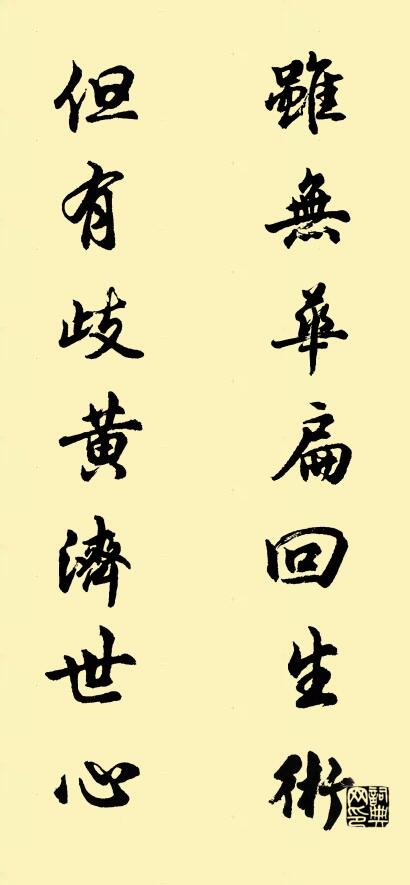 雖無華扁回生術
但有歧黃濟世心
詞典网印